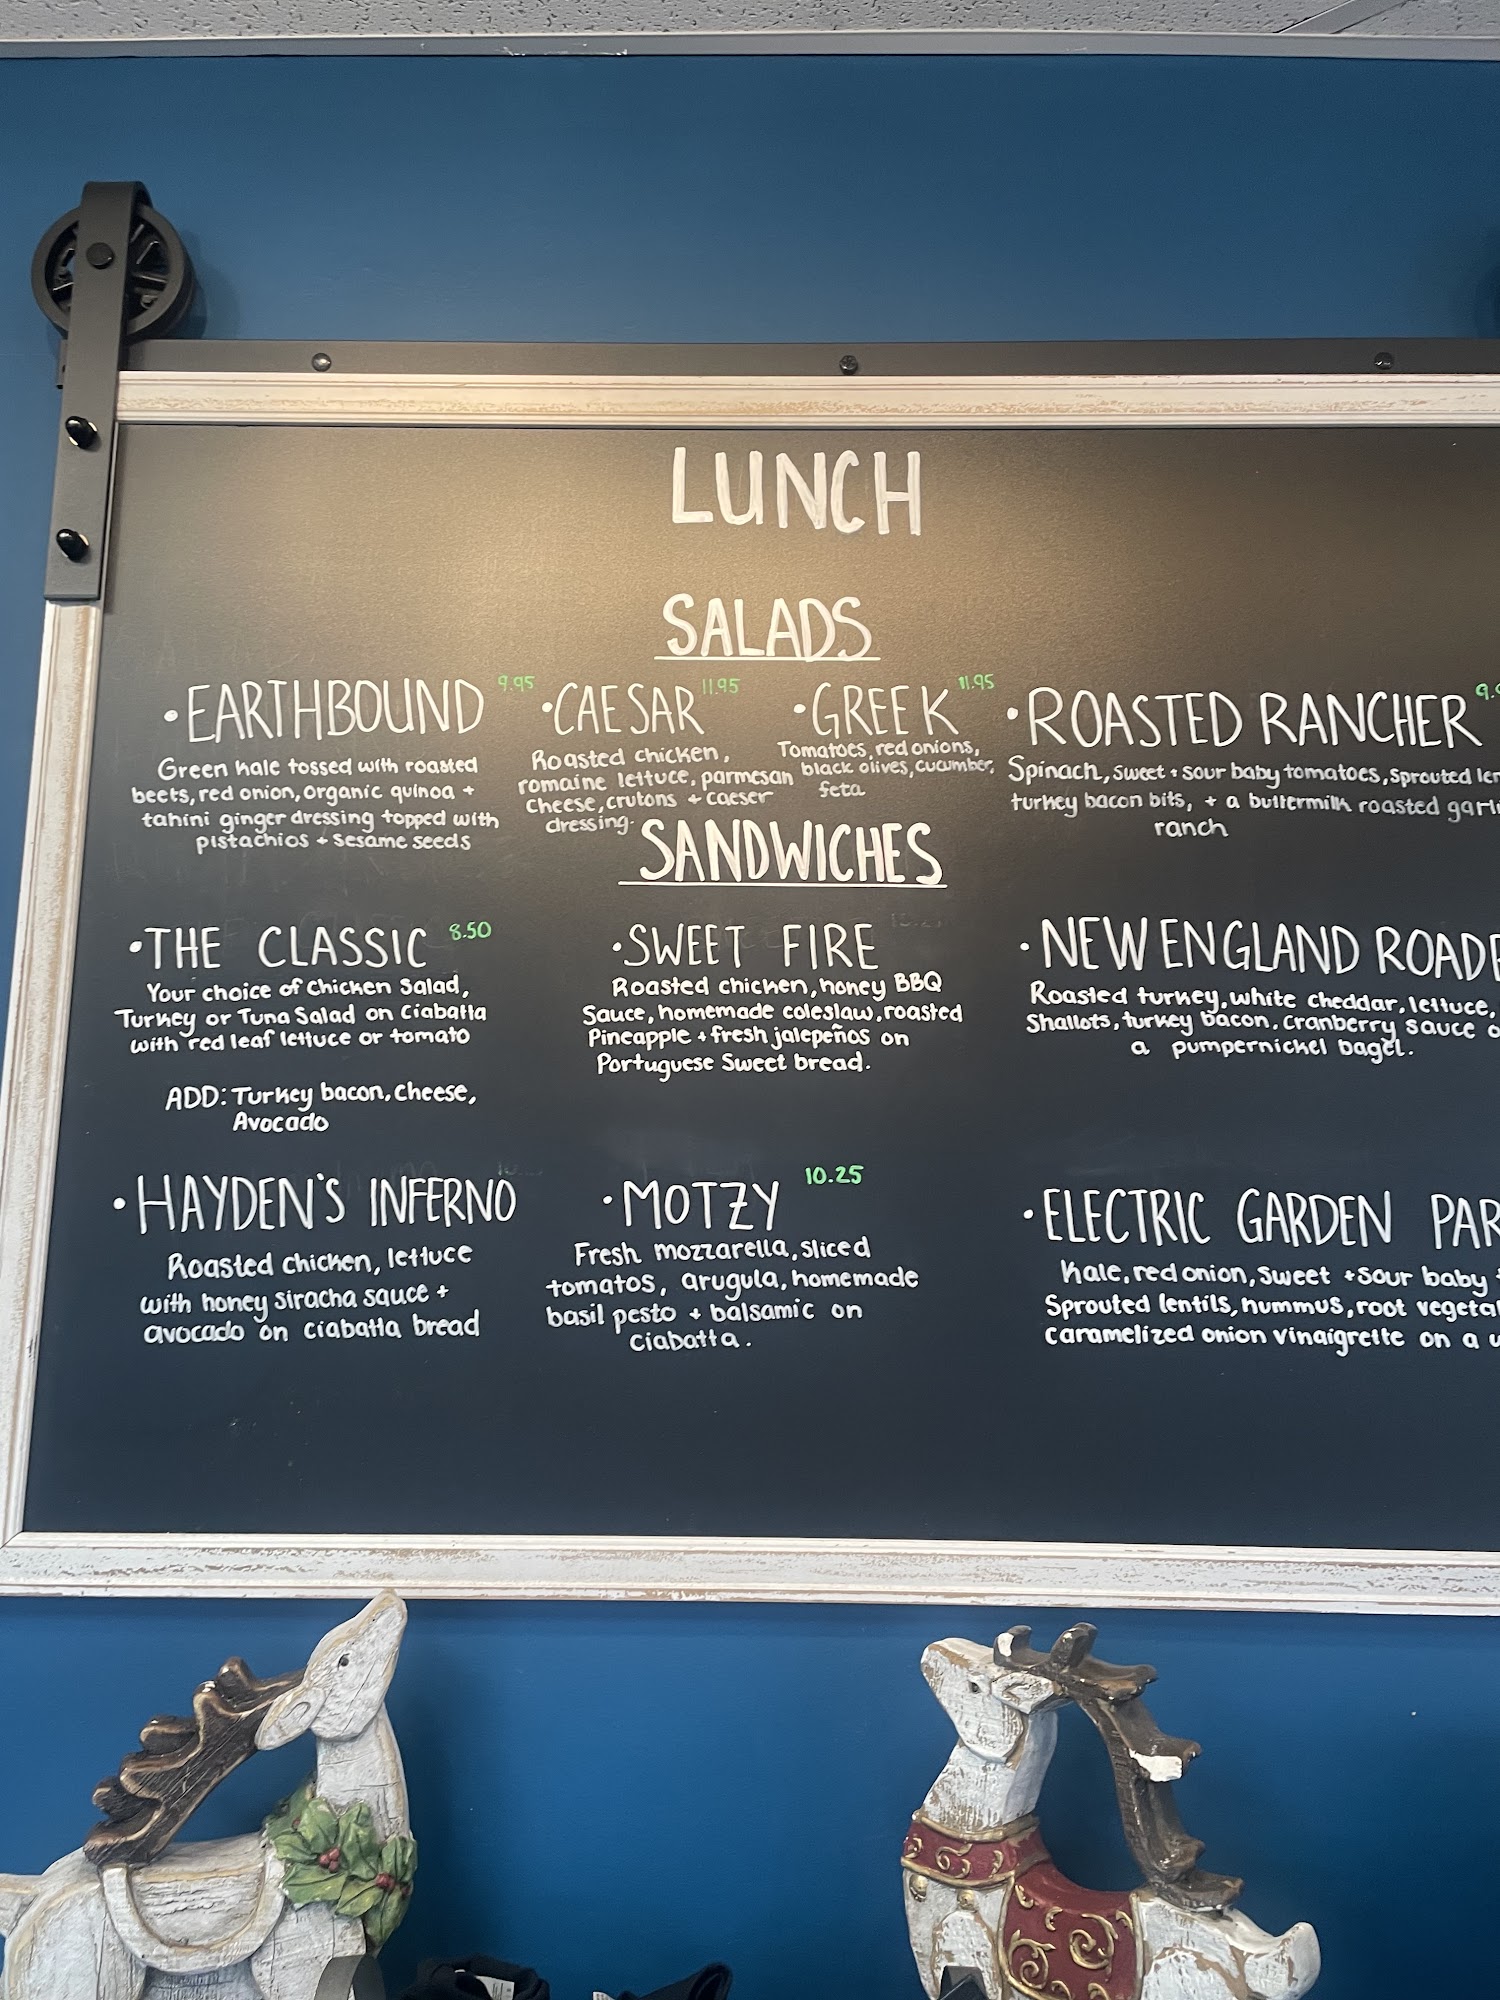 LUNCH
SALADS
•EARTHBOUND 9.95
Green kale tossed with roasted
beets, red onion, organic quinoa +
tahini ginger dressing topped with
pistachios + sesame seeds
•CAESAR 11.95
Roasted chicken,
romaine lettuce, parmesan
cheese, crutons + caeser
dressing.
•GREEK 11.95
Tomatoes, red onions,
black olives, cucumber,
feta
•ROASTED RANCHER
Spinach, sweet + sour baby tomatoes, sprouted
turkey bacon bits, + a buttermilk roasted
ranch
SANDWICHES
•THE CLASSIC 8.50
Your choice of Chicken Salad,
Turkey or Tuna Salad on Ciabatta
with red leaf lettuce or tomato
ADD: Turkey bacon, cheese,
Avocado
•SWEET FIRE
Roasted chicken, honey BBQ
Sauce, homemade coleslaw, roasted
Pineapple + fresh jalepeños on
Portuguese Sweet bread.
•NEW ENGLAND
Roasted turkey, white cheddar, lettuce,
Shallots, turkey bacon, cranberry sauce
a pumpernickel bagel.
•HAYDEN'S INFERNO
Roasted chicken, lettuce
with honey siracha sauce +
avocado on ciabatta bread
•MOTZY 10.25
Fresh mozzarella, sliced
tomatos, arugula, homemade
basil pesto + balsamic on
ciabatta.
•ELECTRIC GARDEN
Kale, red onion, sweet + sour baby
Sprouted lentils, hummus, root
caramelized onion vinaigrette on a